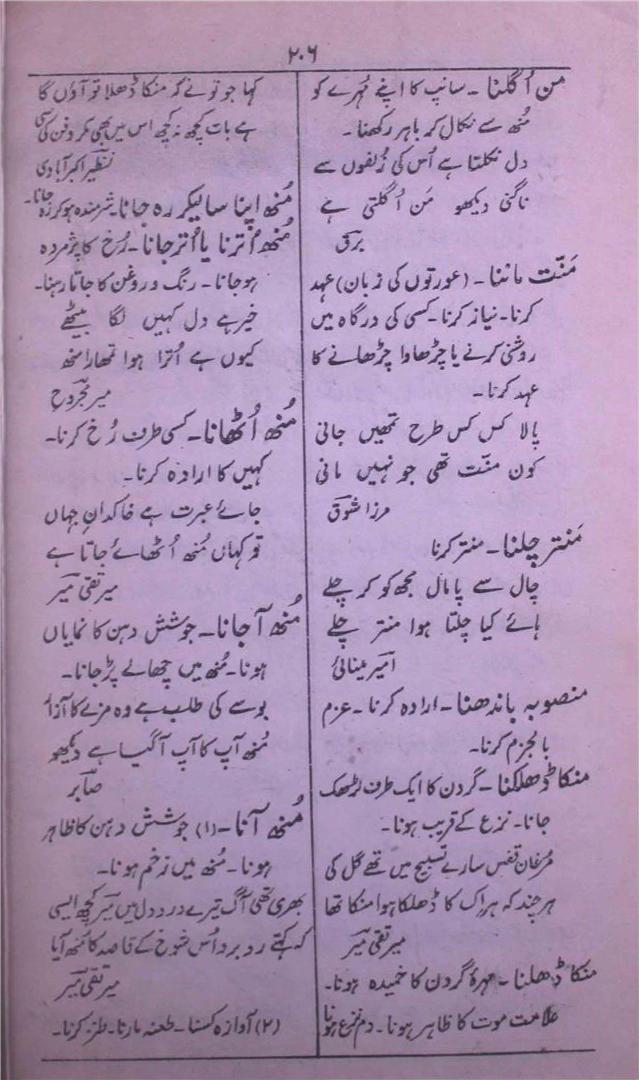 ۲۰۶
من اُگلنا۔ سانپ کا اپنے مُہرے کو
مُنھ سے نکال کر باہر رکھنا۔
دل نکلتا ہے اُس کی زُلفوں سے
ناگنی دیکھو مَن اُگلتی ہے
برق
مَنّت ماننا۔ (عورتوں کی زبان) عہد
کرنا۔ نیاز کرنا۔ کسی کی درگاہ میں
روشنی کرنے یا چڑھاوا چڑھانے کا
عہد کرنا۔
پالا کس کس طرح تمھیں جانی
کون منّت تھی جو نہیں مانی
مرزا شوق
مَنتر چلنا۔ منتر کرنا
چال سے پامال مجھ کو کر چلے
ہائے کیا چلتا ہوا منتر چلے
امیر مینائی
منصوبہ باندھنا۔ ارادہ کرنا۔ عزم
بالجزم کرنا۔
منکا ڈھلکنا۔ گردن کا ایک طرف لڑھک
جانا۔ نزع کے قریب ہونا۔
مرغان قفس سارے تسبیح میں تھے گل کی
ہر چند کہ ہر اک کا ڈھلکا ہوا منکا تھا
میر تقی میر
منکا ڈھلنا۔ مہرۂ گردن کا خمیدہ ہونا۔
علامت موت کا ظاہر ہونا۔ دم نزع ہونا
کہا جو تو نے کہ منکا ڈھلا تو آؤں گا
ہے بات کچھ نہ کچھ اس میں بھی مکر و فن کی سی
نظیر اکبر آبادی
مُنھ اپنا سا لیکر رہ جانا۔ شرمندہ ہو کر رہ جانا۔
مُنھ اُترنا یا اُتر جانا۔ رُخ کا پژمردہ
ہو جانا۔ رنگ و روغن کا جاتا رہنا۔
خیر ہے دل کہیں لگا بیٹھے
کیوں ہے اُترا ہوا تمھارا منھ
میر مجروح
مُنھ اُٹھانا۔ کسی طرف رُخ کرنا۔
کہیں کا ارادہ کرنا۔
جائے عبرت ہے خاکدانِ جہاں
تو کہاں مُنھ اُٹھائے جاتا ہے
میر تقی میر
مُنھ آجانا۔ جوشش دہن کا نمایاں
ہونا۔ مُنھ میں چھالے پڑ جانا۔
بوسے کی طلب ہے وہ مزے کا آزار
مُنھ آپ کا آپ آگیا ہے دیکھو
صابر
مُنھ آنا۔ (۱) جوشش دہن کا ظاہر
ہونا۔ مُنھ میں زخم ہونا۔
بھری تھی آگ تیرے درد دل میں میر کچھ ایسی
کہ کہتے روبرو اُس شوخ کے قاصد کا مُنھ آیا
میر تقی میر
(۲) آوازہ کسنا۔ طعنہ مارنا۔ طنز کرنا۔